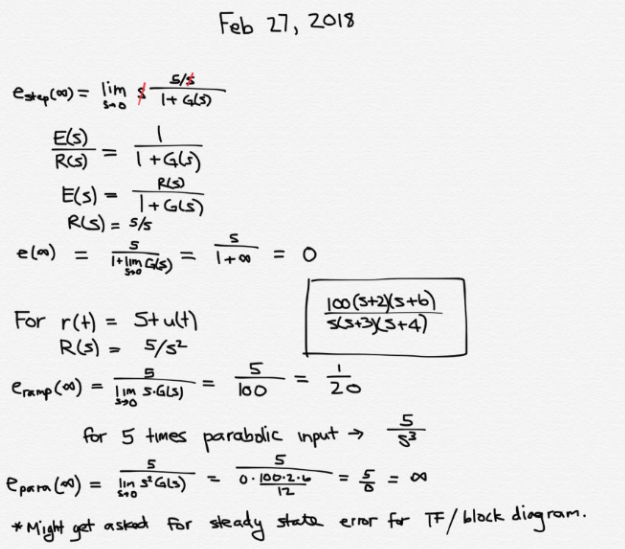 Feb 27, 2018
e_step(∞) = lim_{s→0} s (5/s)/(1 + G(s))
E(s)/R(s) = 1/(1 + G(s))
E(s) = R(s)/(1 + G(s))
R(s) = 5/s
e(∞) = 5/(1 + lim_{s→0} G(s)) = 5/(1 + ∞) = 0
100(s+2)(s+6)/(s(s+3)(s+4))
For r(t) = 5tu(t)
R(s) = 5/s²
e_ramp(∞) = 5/(lim_{s→0} s·G(s)) = 5/100 = 1/20
for 5 times parabolic input → 5/s³
e_para(∞) = 5/(lim_{s→0} s²G(s)) = 5/(0·(100·2·6)/12) = 5/0 = ∞
*Might get asked for steady state error for TF/block diagram.